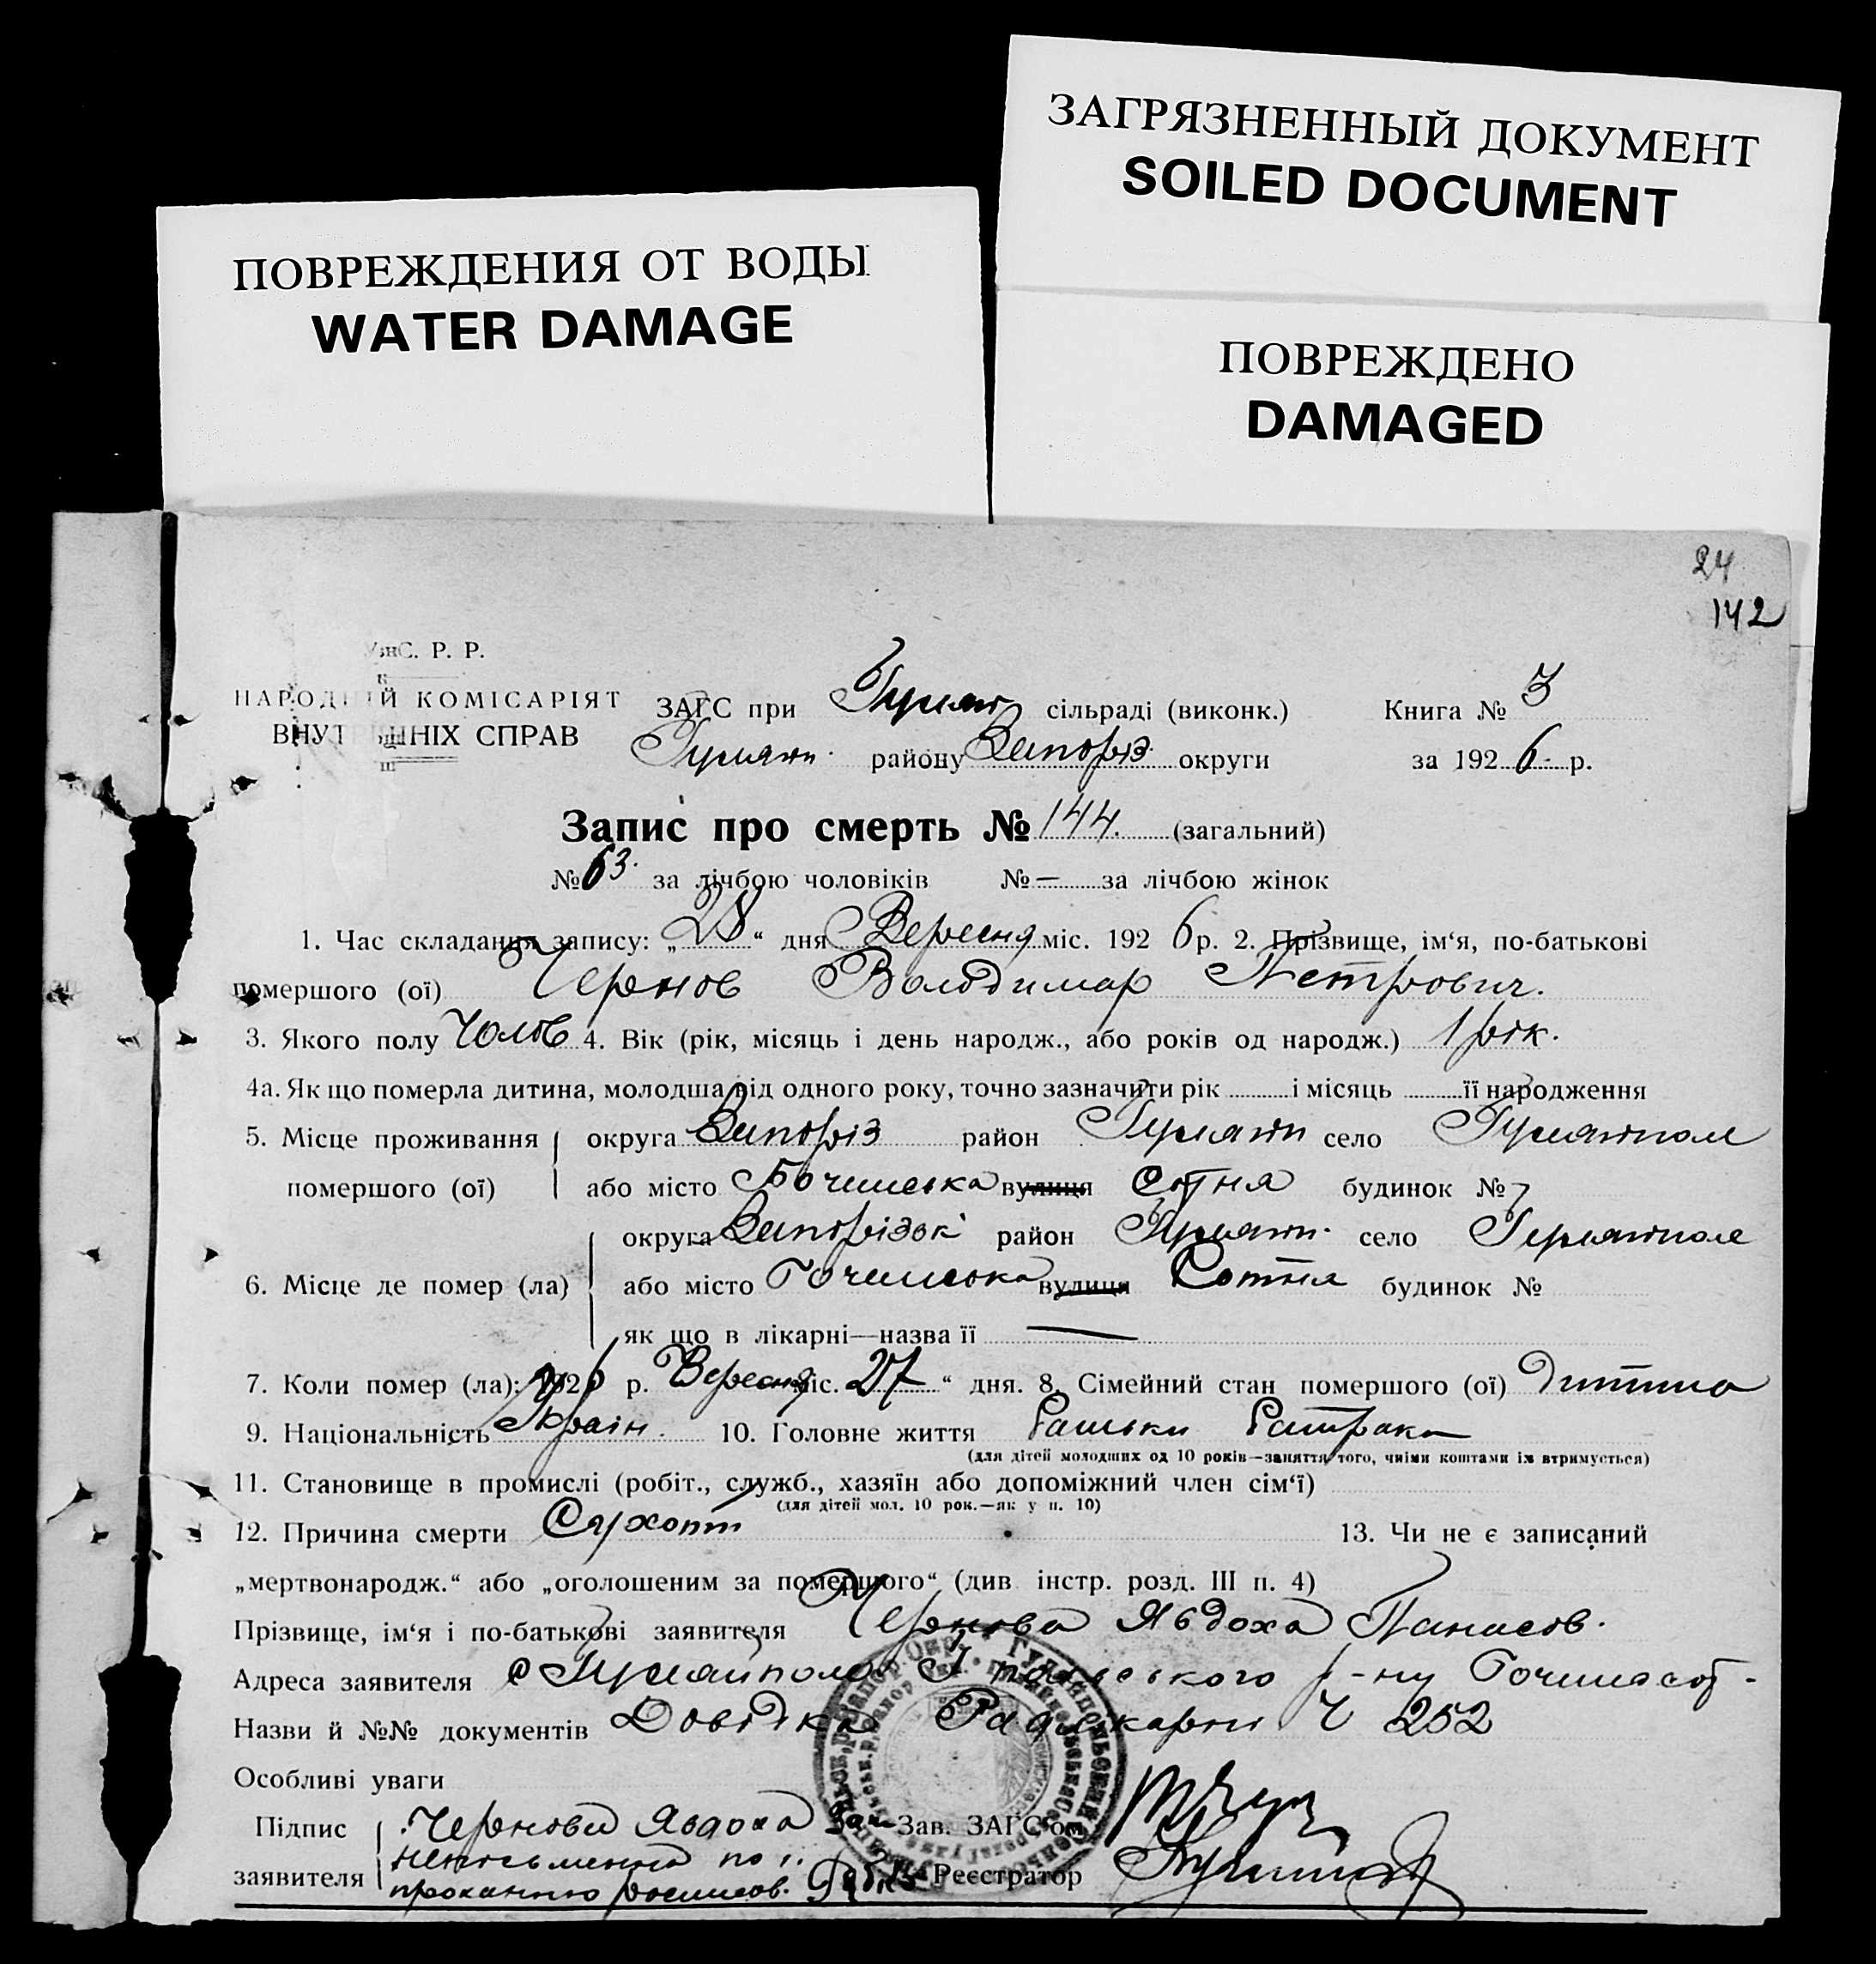 ЗАГРЯЗНЕННЫЙ ДОКУМЕНТ
SOILED DOCUMENT
ПОВРЕЖДЕНИЯ ОТ ВОДЫ
WATER DAMAGE
ПОВРЕЖДЕНО
DAMAGED
24
142
С. Р. Р.
НАРОДНІЙ КОМІСАРІЯТ
ВНУТРІШНІХ СПРАВ
ЗАГС при Гуляй сільраді (виконк.) Книга № 3
Гуляй району Запоріз округи за 1926 р.
Запис про смерть № 144. (загальний)
№ 63. за лічбою чоловіків № — за лічбою жінок
1. Час складання запису: „28“ дня Вересня міс. 1926 р. 2. Прізвище, ім‘я, по-батькові
помершого (ої) Чернов Володимар Петрович.
3. Якого полу Чолов 4. Вік (рік, місяць і день народж., або років од народж.) 1 рік.
4а. Як що померла дитина, молодша від одного року, точно зазначити рік і місяць її народження
5. Місце проживання помершого (ої) округа Запоріз район Гуляй село Гуляйполе
або місто вулиця Сотня будинок №
6. Місце де помер (ла) округа Запорізьк район Гуляй село Гуляйполе
або місто вулиця Сотня будинок №
як що в лікарні—назва її —
7. Коли помер (ла): 1926 р. Вересня міс. 27 “ дня. 8. Сімейний стан помершого (ої) Дитина
9. Національність Україн. 10. Головне життя
(для дітей молодших од 10 років—заняття того, чиїми коштами їх втримується)
11. Становище в промислі (робіт., служб., хазяїн або допоміжний член сім‘ї)
(для дітей мол. 10 рок.—як у п. 10)
12. Причина смерти Сухопт 13. Чи не є записаний
„мертвонародж.“ або „оголошеним за помершого“ (див інстр. розд. III п. 4)
Прізвище, ім‘я і по-батькові заявителя Чернова Явдоха Панасов.
Адреса заявителя с Гуляйполе р-ну
Назви й №№ документів Довідка Райлікарні Ч 252
Особливі уваги
Підпис заявителя Чернова Явдоха Зав. ЗАГС‘ом
неписьменна по її
проханню росписов. Реєстратор